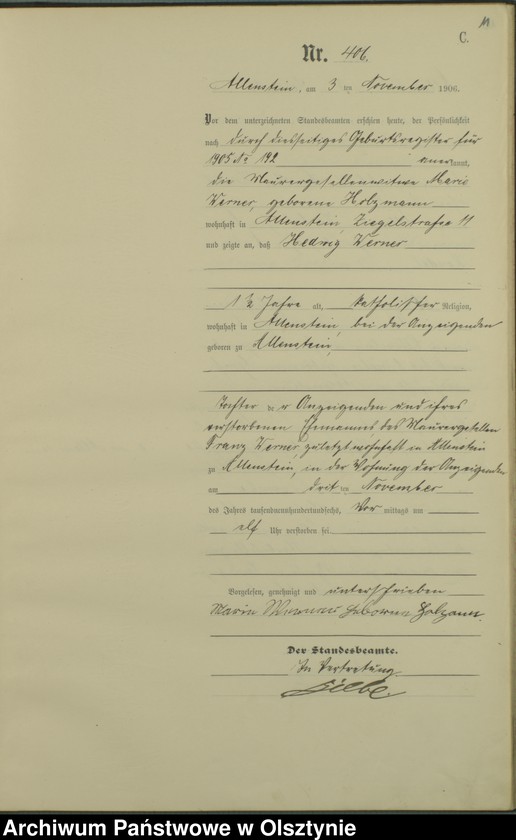 C.
Nr. 406.
Allenstein, am 3 ten November 1906.
Vor dem unterzeichneten Standesbeamten erschien heute, der Persönlichkeit
nach durch diesseitiges Geburtsregister für
1905 No 192 anerkannt,
die Maurergesellenwitwe Marie
Werner, geborene Holzmann
wohnhaft in Allenstein, Ziegelstraße 11
und zeigte an, daß Hedwig Werner
1 1/2 Jahre alt, katholischer Religion,
wohnhaft in Allenstein, bei der Anzeigenden
geboren zu Allenstein,
Tochter der Anzeigenden und ihres
verstorbenen Ehemannes, des Maurergesellen
Franz Werner, zuletzt wohnhaft in Allenstein
zu Allenstein, in der Wohnung der Anzeigenden
am dritten November
des Jahres tausendneunhundertundsechs, Vormittags um
elf Uhr verstorben sei.
Vorgelesen, genehmigt und unterschrieben
Maria Werner Geborne
Der Standesbeamte.
In Vertretung
Archiwum Państwowe w Olsztynie